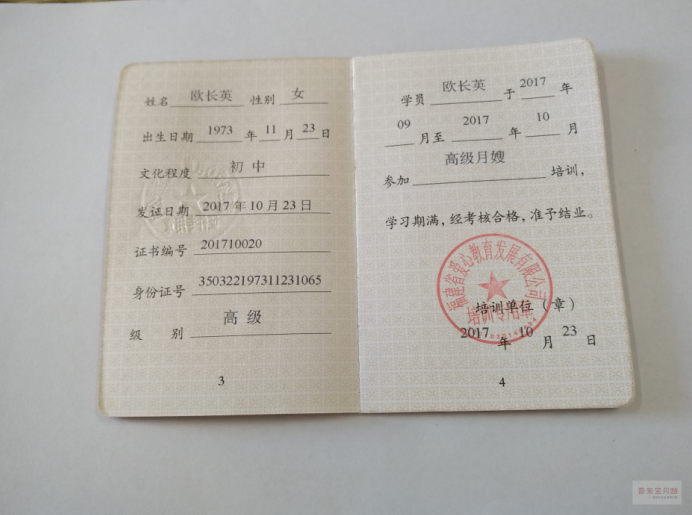 姓名 欧长英 性别 女
出生日期 1973 年 11 月 23 日
文化程度 初中
发证日期 2017年10月23日
证书编号 201710020
身份证号 350322197311231065
级 别 高级
3
学员 欧长英 于 2017 年
09 月至 2017 年 10 月
参加 高级月嫂 培训,
学习期满,经考核合格,准予结业。
福建省爱心教育发展有限公司
培训专用章
培训单位(章)
2017 年 10 月 23 日
4